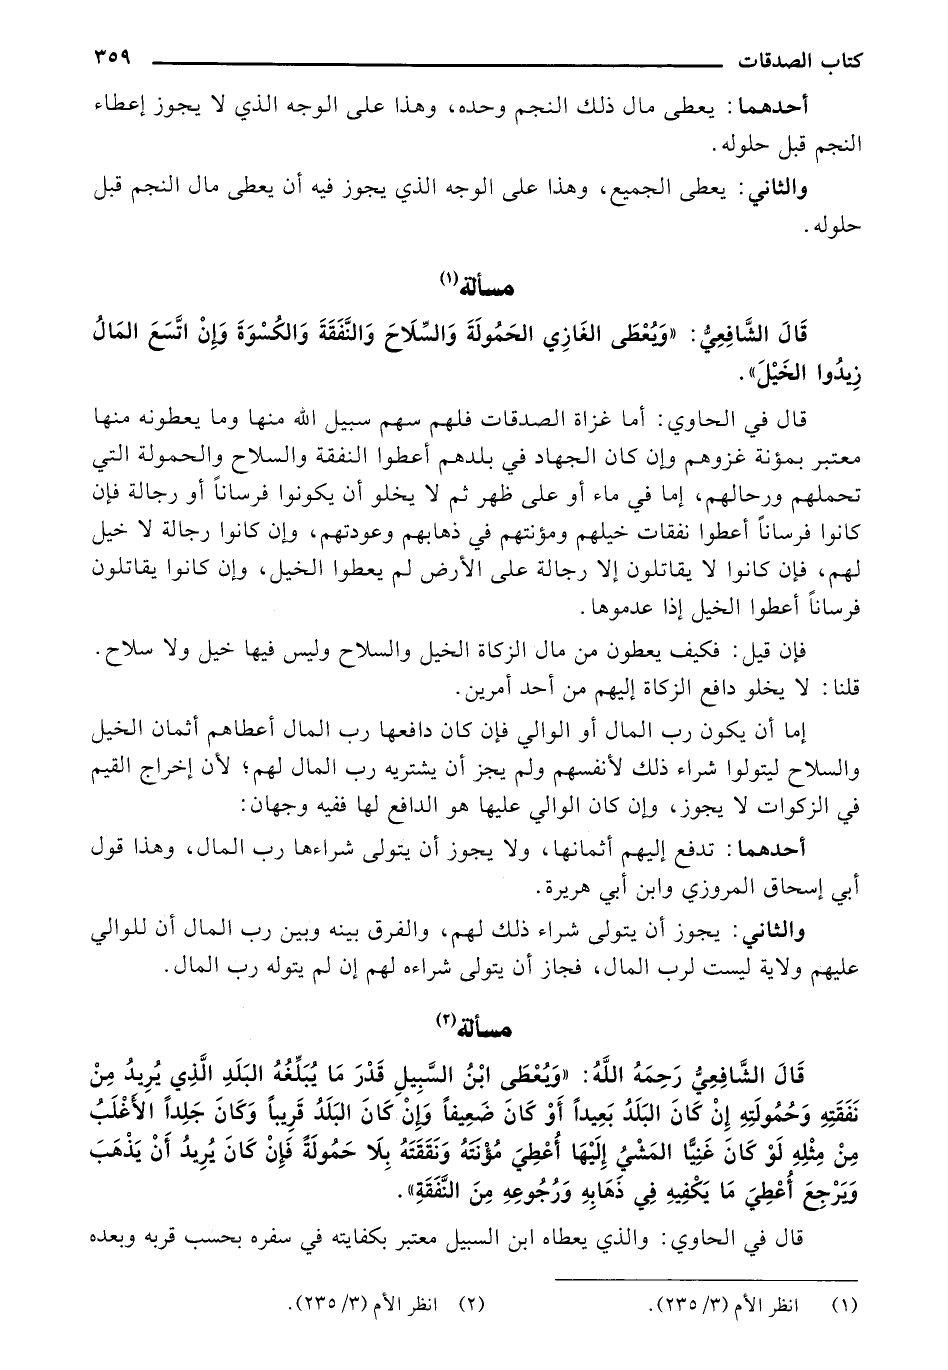 كتاب الصدقات ٣٥٩
أحدهما: يعطى مال ذلك النجم وحده، وهذا على الوجه الذي لا يجوز إعطاء
النجم قبل حلوله.
والثاني: يعطى الجميع، وهذا على الوجه الذي يجوز فيه أن يعطى مال النجم قبل
حلوله.
مسألة(١)
قَالَ الشَّافِعِيُّ: «وَيُعْطَى الغَازِي الحَمُولَةَ وَالسِّلَاحَ وَالنَّفَقَةَ وَالكُسْوَةَ وَإِنْ اتَّسَعَ المَالُ
زِيدُوا الخَيْلَ».
قال في الحاوي: أما غزاة الصدقات فلهم سهم سبيل الله منها وما يعطونه منها
معتبر بمؤنة غزوهم وإن كان الجهاد في بلدهم أعطوا النفقة والسلاح والحمولة التي
تحملهم ورحالهم، إما في ماء أو على ظهر ثم لا يخلو أن يكونوا فرساناً أو رجالة فإن
كانوا فرساناً أعطوا نفقات خيلهم ومؤنتهم في ذهابهم وعودتهم، وإن كانوا رجالة لا خيل
لهم، فإن كانوا لا يقاتلون إلا رجالة على الأرض لم يعطوا الخيل، وإن كانوا يقاتلون
فرساناً أعطوا الخيل إذا عدموها.
فإن قيل: فكيف يعطون من مال الزكاة الخيل والسلاح وليس فيها خيل ولا سلاح.
قلنا: لا يخلو دافع الزكاة إليهم من أحد أمرين.
إما أن يكون رب المال أو الوالي فإن كان دافعها رب المال أعطاهم أثمان الخيل
والسلاح ليتولوا شراء ذلك لأنفسهم ولم يجز أن يشتريه رب المال لهم؛ لأن إخراج القيم
في الزكوات لا يجوز، وإن كان الوالي عليها هو الدافع لها ففيه وجهان:
أحدهما: تدفع إليهم أثمانها، ولا يجوز أن يتولى شراءها رب المال، وهذا قول
أبي إسحاق المروزي وابن أبي هريرة.
والثاني: يجوز أن يتولى شراء ذلك لهم، والفرق بينه وبين رب المال أن للوالي
عليهم ولاية ليست لرب المال، فجاز أن يتولى شراءه لهم إن لم يتوله رب المال.
مسألة(٢)
قَالَ الشَّافِعِيُّ رَحِمَهُ اللَّهُ: «وَيُعْطَى ابْنُ السَّبِيلِ قَدْرَ مَا يُبَلِّغُهُ البَلَدِ الَّذِي يُرِيدُ مِنْ
نَفَقَتِهِ وَحُمُولَتِهِ إِنْ كَانَ البَلَدُ بَعِيداً أَوْ كَانَ ضَعِيفاً وَإِنْ كَانَ البَلَدُ قَرِيباً وَكَانَ جَلِداً الأَغْلَبُ
مِنْ مِثْلِهِ لَوْ كَانَ غَنِيًّا المَشْيُ إِلَيْهَا أُعْطِيَ مُؤْنَتَهُ وَنَفَقَتَهُ بِلَا حَمُولَةً فَإِنْ كَانَ يُرِيدُ أَنْ يَذْهَبَ
وَيَرْجِعَ أُعْطِيَ مَا يَكْفِيهِ فِي ذَهَابِهِ وَرُجُوعِهِ مِنَ النَّفَقَةِ».
قال في الحاوي: والذي يعطاه ابن السبيل معتبر بكفايته في سفره بحسب قربه وبعده
(١) انظر الأم (٣/ ٢٣٥). (٢) انظر الأم (٣/ ٢٣٥).